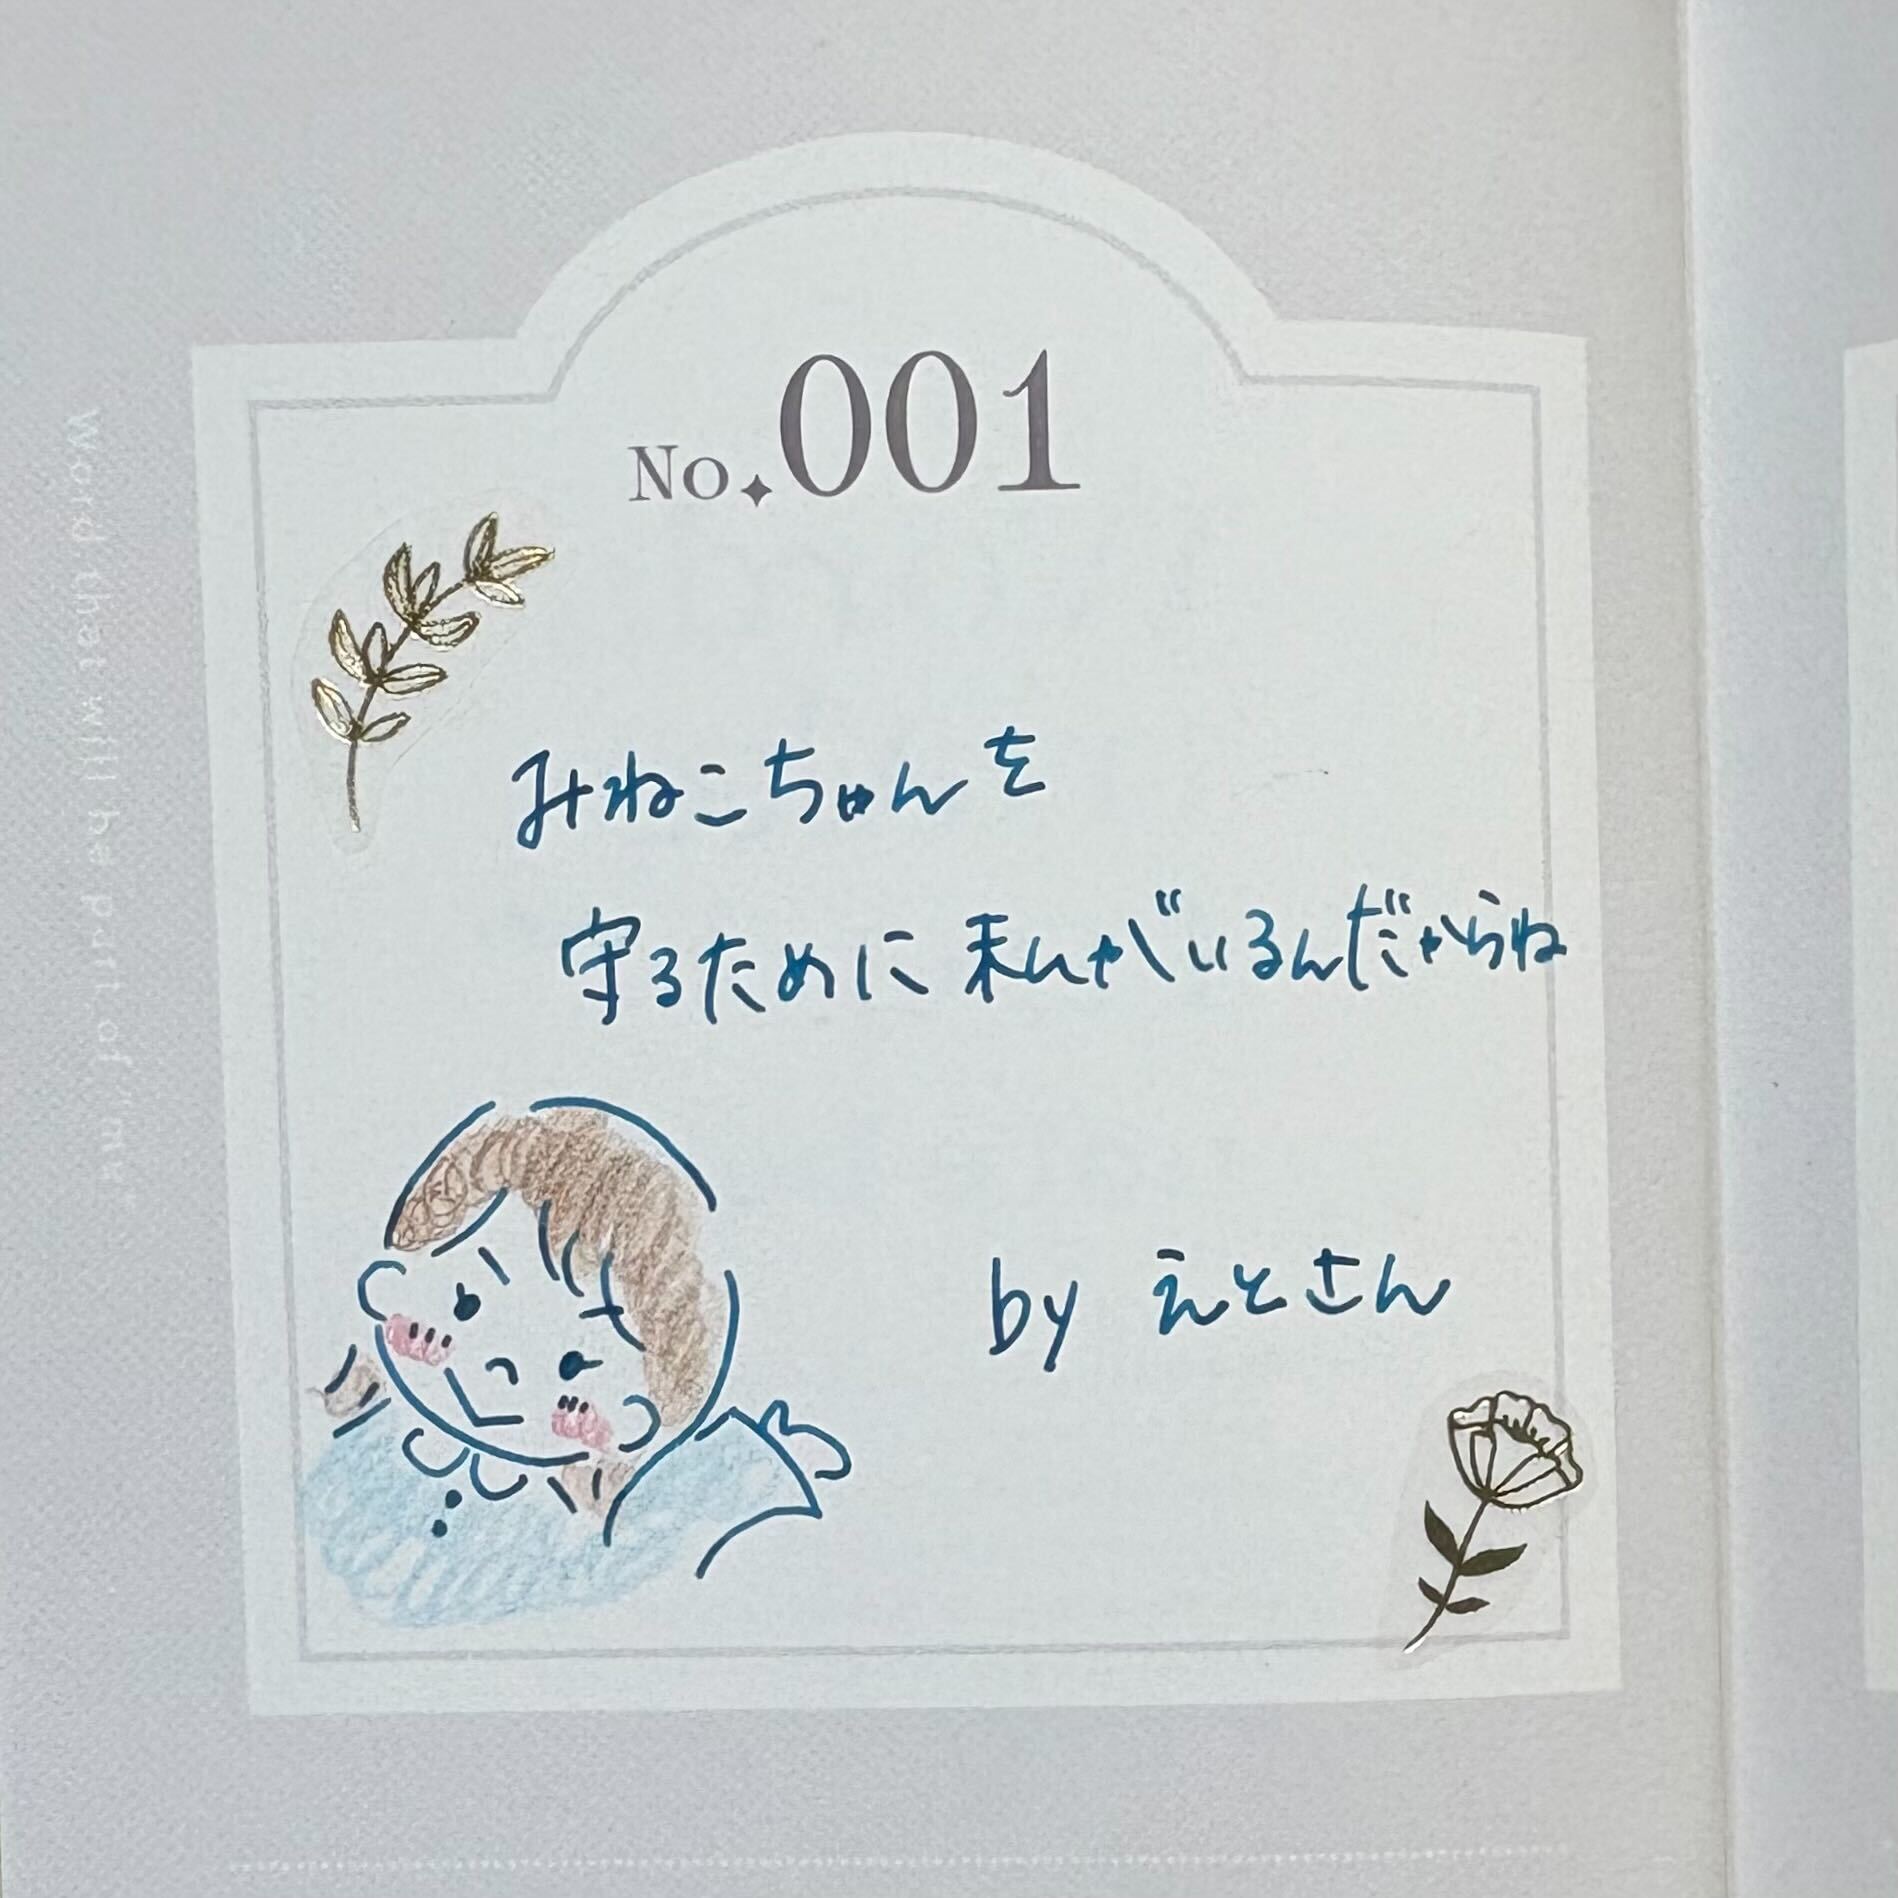 No.001
みねこちゃんを
守るために私がいるんだからね
by えとさん
word that will be part of me